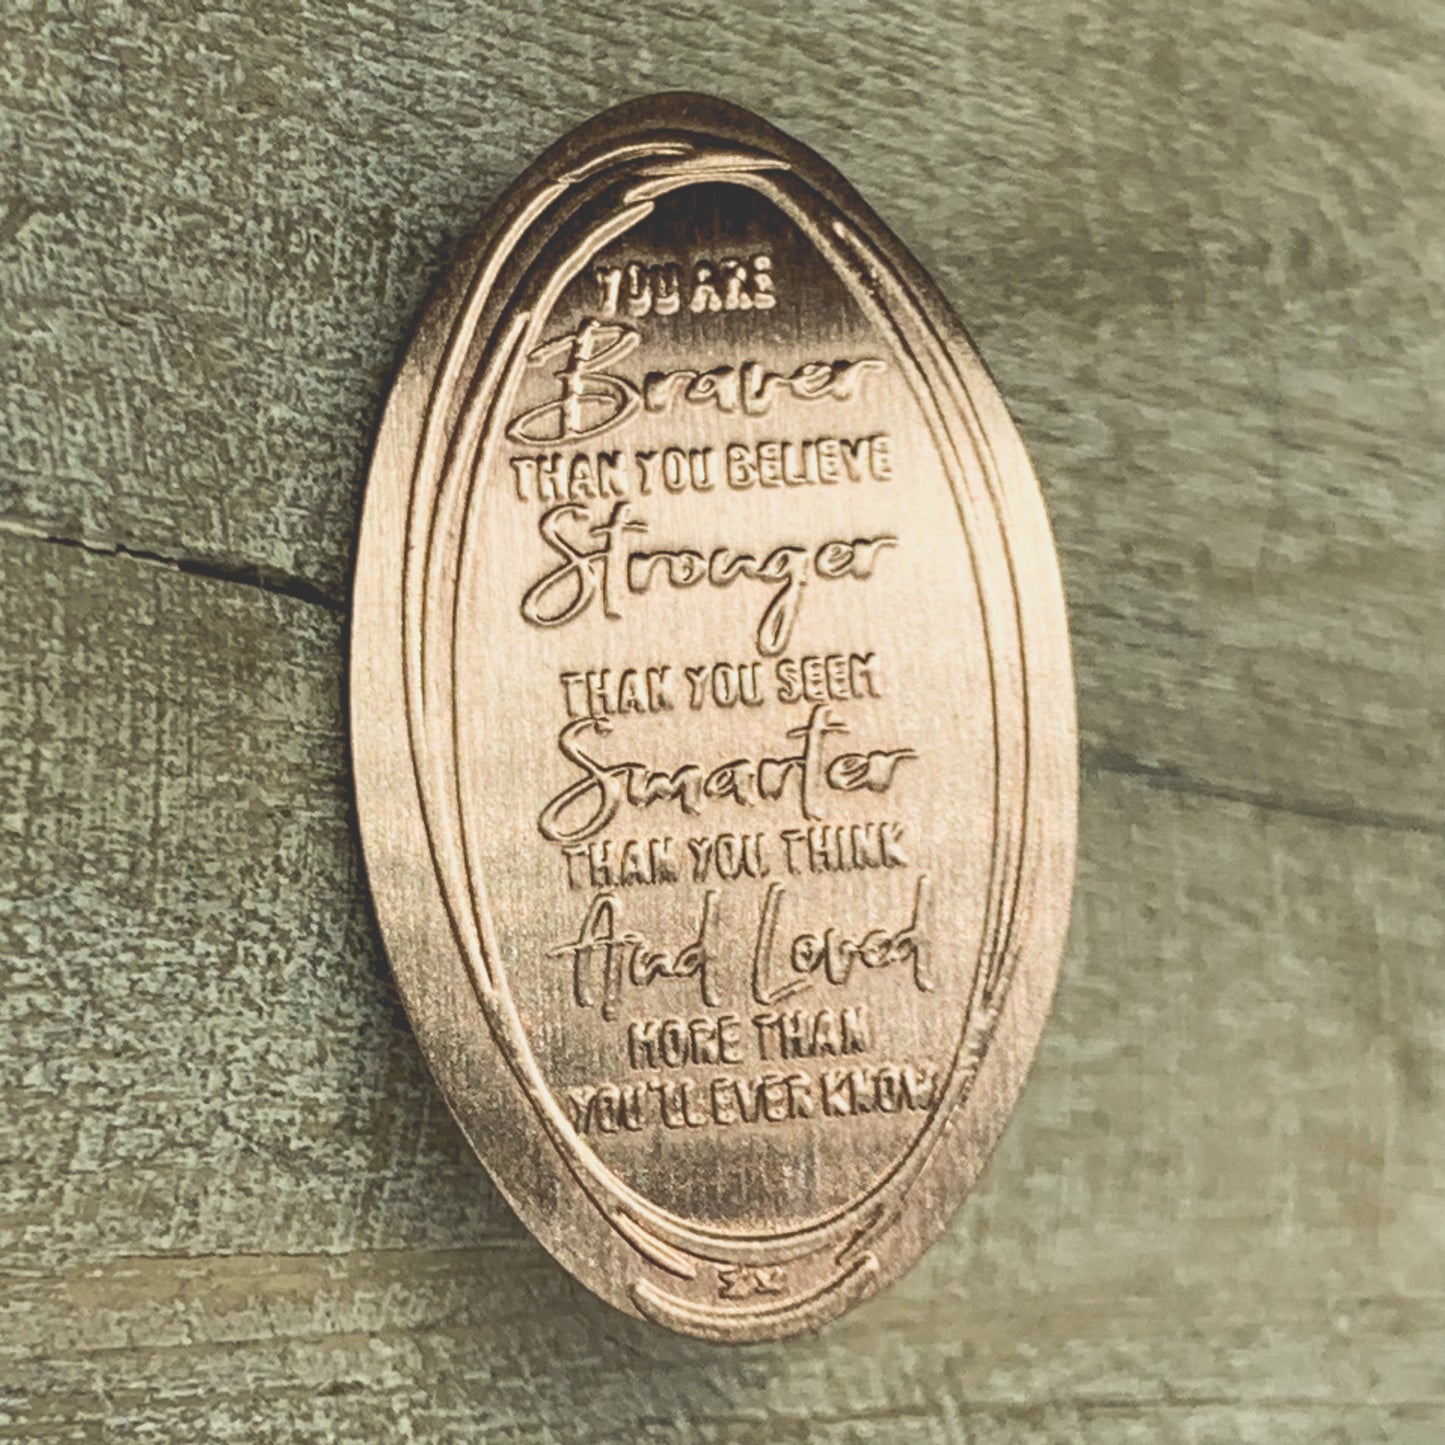 YOU ARE
Braver
THAN YOU BELIEVE
Stronger
THAN YOU SEEM
Smarter
THAN YOU THINK
And Loved
MORE THAN
YOU'LL EVER KNOW